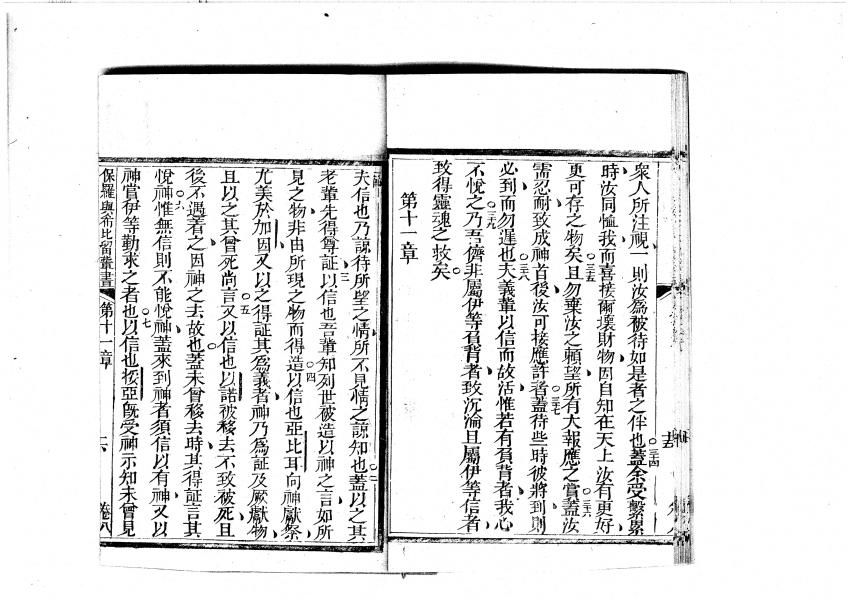 衆人所注視一則汝爲被待如是者之伴也○三四蓋余受繫累
時汝同恤我而喜接爾壞財物因自知在天上汝有更好
更可存之物矣○三五且勿棄汝之賴望所有大報應之賞○三六蓋汝
需忍耐致成神旨後汝可接應許者○三七蓋待些時彼將到則
必到而勿遲也○三八夫義輩以信而故活惟若有負背者我心
不悅之○三九乃吾儕非屬伊等負背者致沉淪且屬伊等信者
致得靈魂之救矣○
第十一章
夫信也乃諒待所望之情所不見情之諒知也○二蓋以之其
老輩先得尊証○三以信也吾輩知列世被造以神之言如所
見之物非由所現之物而得造○四以信也亞比耳向神獻祭
尤美於加因又以之得証其爲義者神乃爲証及厥獻物
且以之其曾死尚言○五又以信也以諾被移去不致被死且
後不遇着之因神之去故也蓋未曾移去時其得証言其
悅神○六惟無信則不能悅神蓋來到神者須信以有神又以
神賞伊等勤求之者也○七以信也挼亞旣受神示知未曾見
保羅與希比留輩書
第十一章
卷八